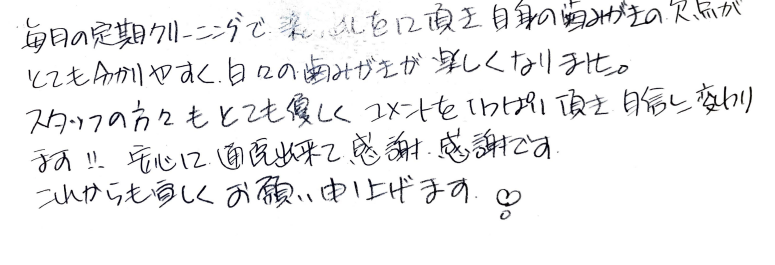 毎月の定期クリーニングで 頂き 自身の歯みがきの欠点が
とても分かりやすく、日々の歯みがきが楽しくなりました。
スタッフの方々もとても優しくコメントをいっぱい頂き自信に変わり
ます!! 安心に通院出来て感謝、感謝です。
これからも宜しくお願い申し上げます。